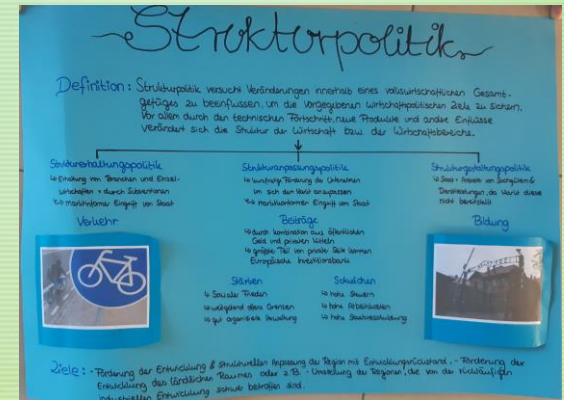 Strukturpolitik
Definition: Strukturpolitik versucht Veränderungen innerhalb eines volkswirtschaftlichen Gesamt-
gefüges zu beeinflussen, um die vorgegebenen wirtschaftspolitischen Ziele zu sichern.
Vor allem durch den technischen Fortschritt, neue Produkte und andre Einflüsse
verändert sich die Struktur der Wirtschaft bzw. der Wirtschaftsbereiche.
Strukturerhaltungspolitik
↳ Erhaltung von Branchen und Einzel-
wirtschaften durch Subventionen
marktkonformer Eingriff von Staat
Strukturanpassungspolitik
Förderung der Unternehmen
um sich den Markt anzupassen
marktkonformen Eingriff von Staat
Strukturgestaltungspolitik
↳ Staat Anbieter von Sachgütern &
Dienstleistungen, da Markt diese
nicht bereitstellt
Verkehr
Beiträge
↳ durch Kombination aus öffentlichen
Geld und privaten Mitteln
↳ größte Teil von private Seite kommen
Europäische Investitionsbank
Bildung
Stärken
↳ Sozialer Frieden
↳ weitgehend offene Grenzen
↳ gut organisierte Verwaltung
Schwächen
↳ hohe Steuern
↳ hohe Arbeitskosten
↳ hohe Staatsverschuldung
Ziele: - Förderung der Entwicklung & strukturellen Anpassung der Region mit Entwicklungsrückstand, - Förderung der
Entwicklung des ländlichen Raumes oder z.B. - Umstellung der Regionen, die von der rückläufigen
industriellen Entwicklung schwer betroffen sind.